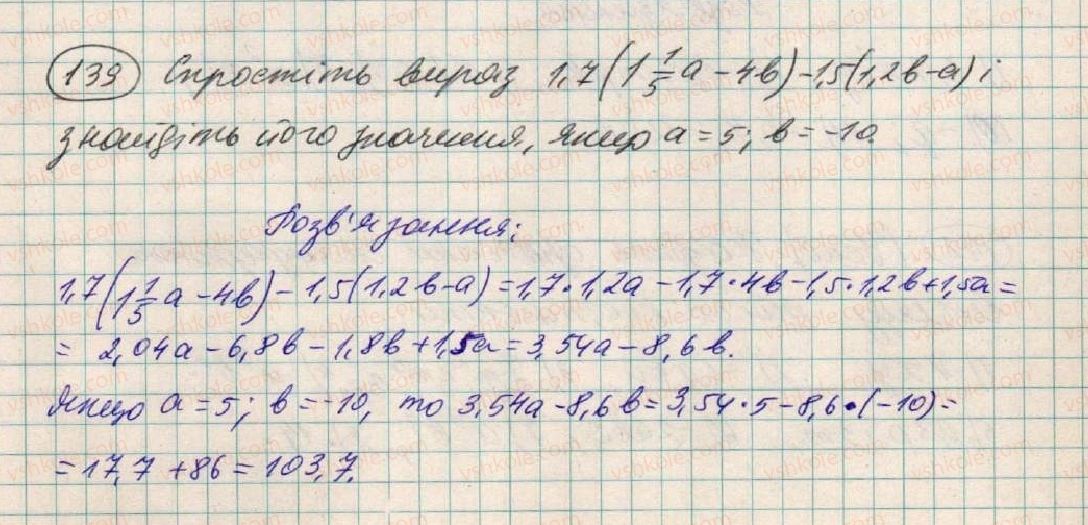 139 Спростіть вираз 1,7(1 1/5 a - 4b) - 1,5(1,2b - a) і
знайдіть його значення, якщо a = 5; b = -10.
Розв'язання:
1,7(1 1/5 a - 4b) - 1,5(1,2b - a) = 1,7 · 1,2a - 1,7 · 4b - 1,5 · 1,2b + 1,5a =
= 2,04a - 6,8b - 1,8b + 1,5a = 3,54a - 8,6b.
Якщо a = 5; b = -10, то 3,54a - 8,6b = 3,54 · 5 - 8,6 · (-10) =
= 17,7 + 86 = 103,7.